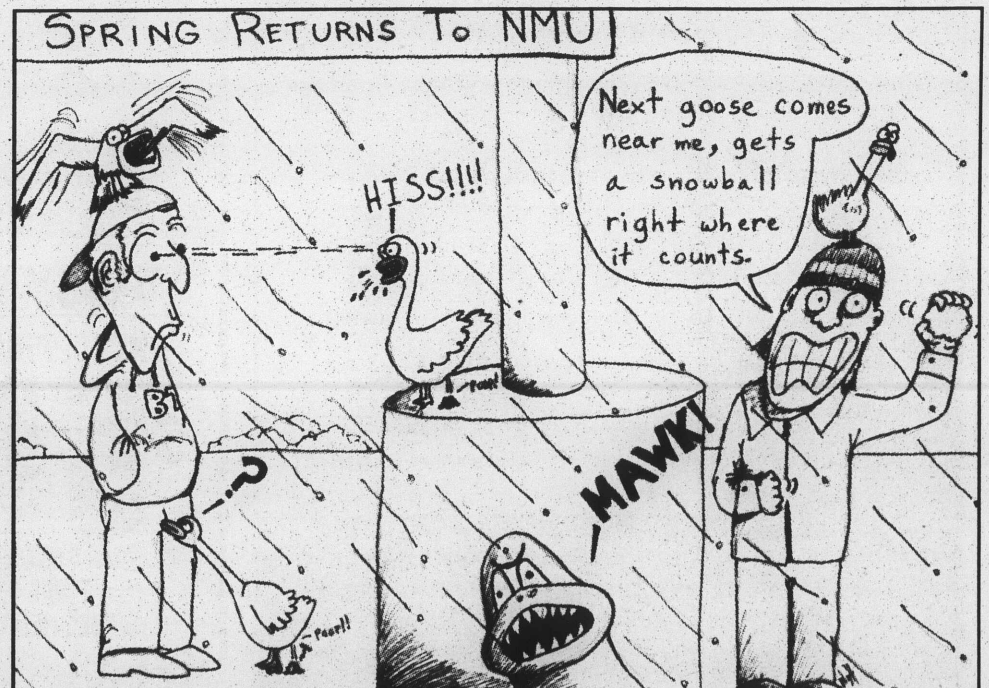 SPRING RETURNS TO NMU
Next goose comes
near me, gets
a snowball
right where
it counts.
HISS!!!!
Poop!
MAWK!
?
Poop!!